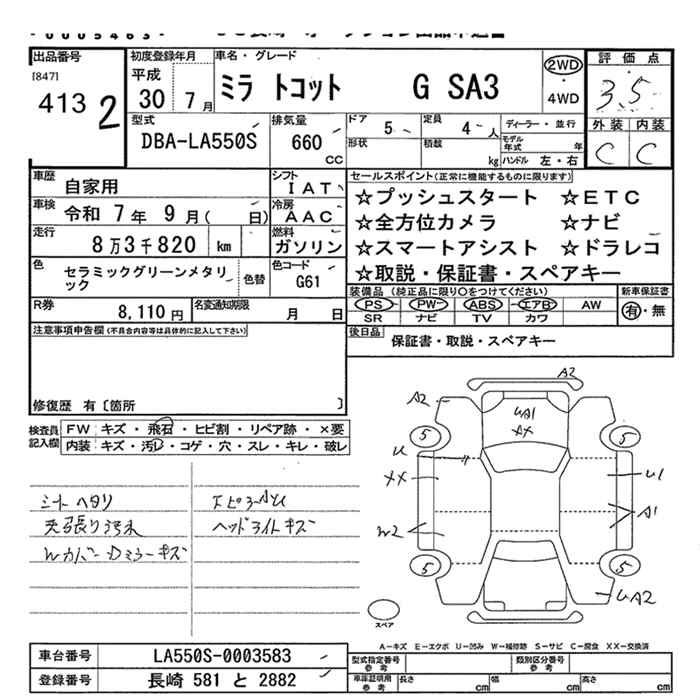 出品番号
[847]
413 2
初度登録年月
平成
30 年 7 月
車名・グレード
ミラ トコット G SA3
2WD
・
4WD
評価点
3.5
外装 内装
C C
型式
DBA-LA550S
排気量
660
CC
ドア 5
定員 4 人
形状
積数 kg
ディーラー・並行
モデル年式 年
ハンドル 左・右
車歴 自家用
シフト IAT
車検 令和 7 年 9 月( 日)
冷房 AAC
走行 8万3千820 km
燃料 ガソリン
色 セラミックグリーンメタリック
色替
色コード G61
R券 8,110 円
名変通知期限 月 日
セールスポイント(正常に機能するものに限ります)
☆プッシュスタート ☆ETC
☆全方位カメラ ☆ナビ
☆スマートアシスト ☆ドラレコ
☆取説・保証書・スペアキー
装備品 (純正品に限り○をつけてください)
PS PW ABS エアB AW
SR ナビ TV カワ
新車保証書
有・無
後日品 保証書・取説・スペアキー
注意事項申告欄(不具合内容等は具体的に記入して下さい)
修復歴 有〔箇所 〕
検査員記入欄
FW キズ・飛石・ヒビ割・リペア跡・×要
内装 キズ・汚レ・コゲ・穴・スレ・キレ・破レ
シートヘタリ
天張り汚れ
Wカバー Dミラーキズ
ヘッドライトキズ
A2
A2
UA1
AX
5 5
U
XX
U1
A1
W2
5 5
UA2
スペア
A-キズ E-エクボ U-凹み W-補修跡 S-サビ C-腐食 XX-交換済
車台番号 LA550S-0003583
登録番号 長崎 581 と 2882
型式指定番号 参考
類別区分番号 参考
車庫証明用 参考
長さ cm 幅 cm 高さ cm